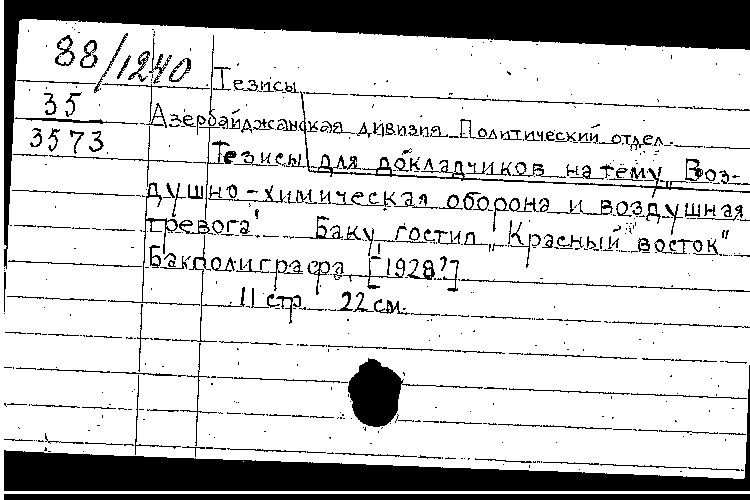 88/1240
Тезисы
35
3573
Азербайджанская дивизия Политический отдел.
Тезисы для докладчиков на тему „Воз-
душно-химическая оборона и воздушная
тревога". Баку гостип „Красный восток"
Бакполиграфа, [1928?]
11 стр. 22 см.